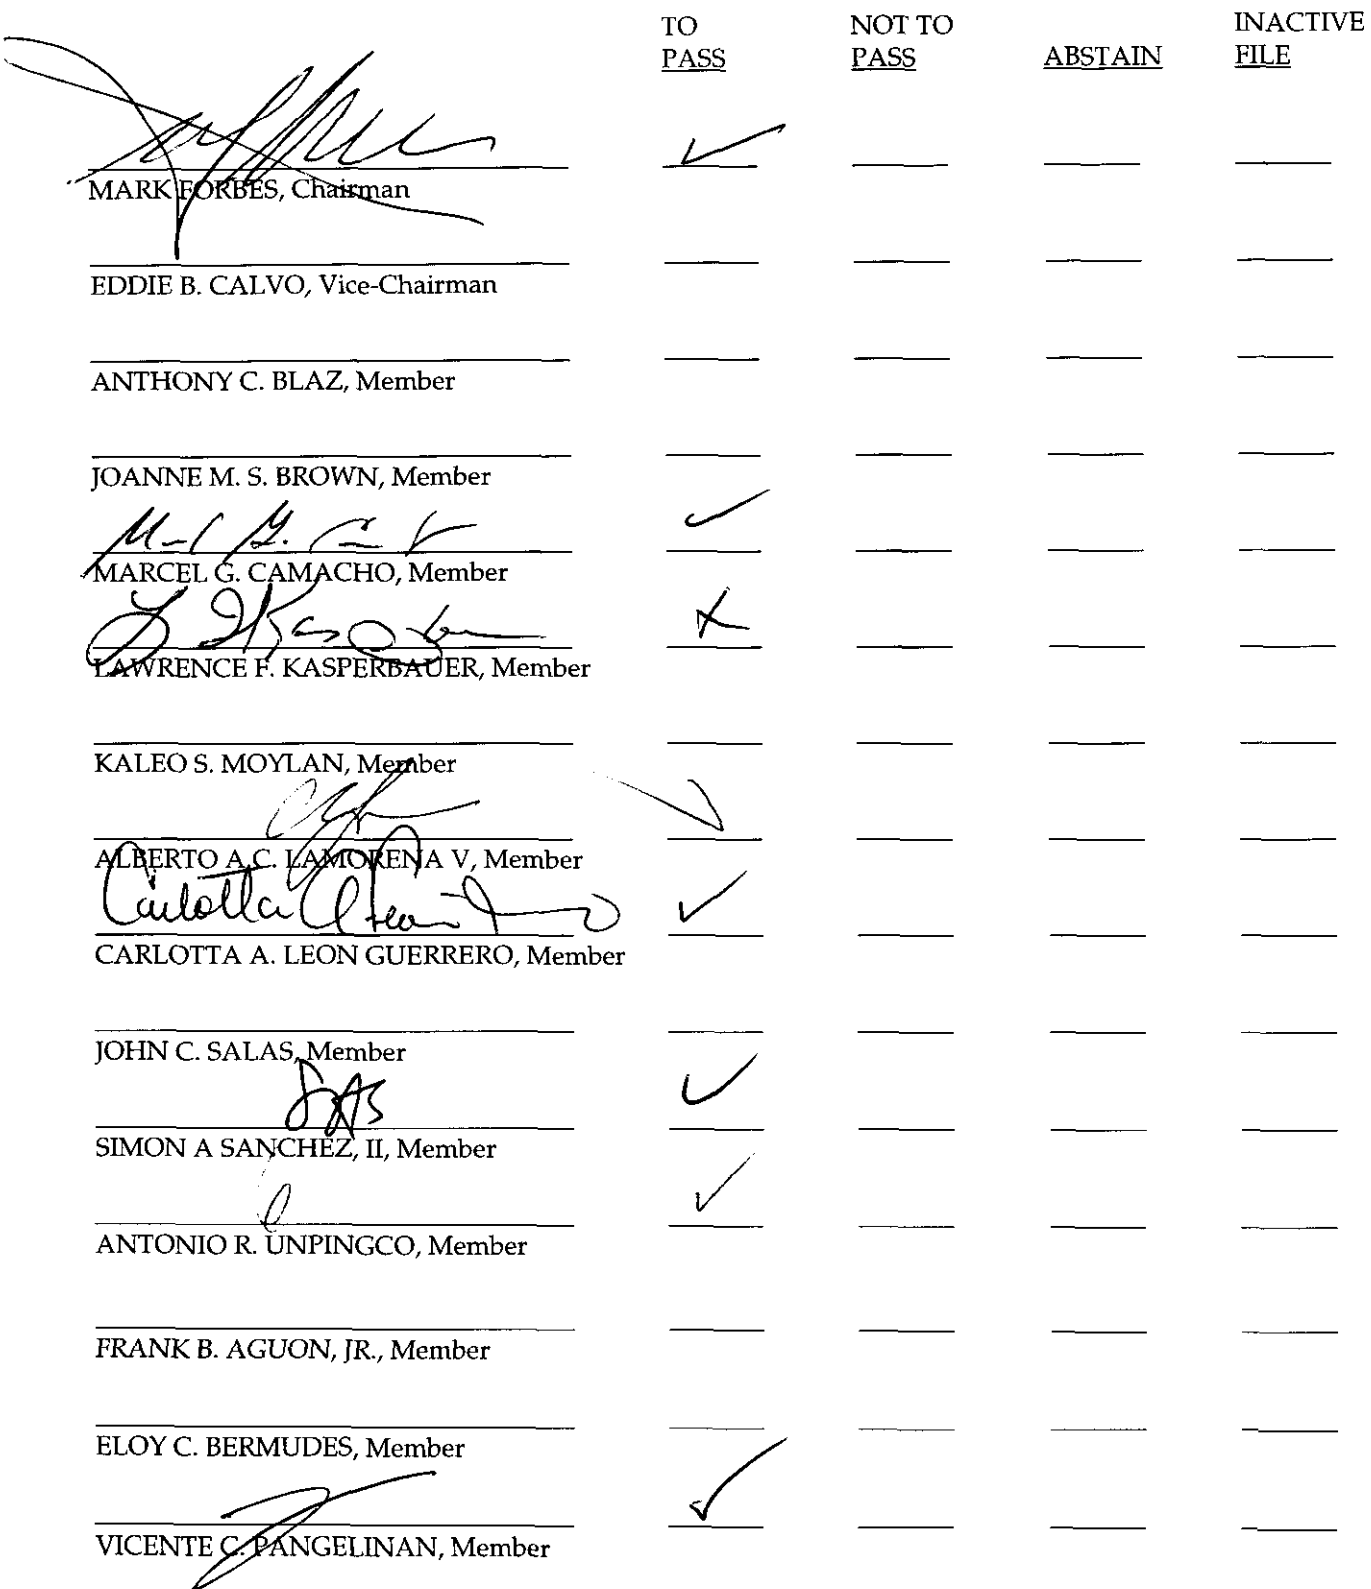 TO NOT TO INACTIVE
PASS PASS ABSTAIN FILE
MARK FORBES, Chairman
EDDIE B. CALVO, Vice-Chairman
ANTHONY C. BLAZ, Member
JOANNE M. S. BROWN, Member
MARCEL G. CAMACHO, Member
LAWRENCE F. KASPERBAUER, Member
KALEO S. MOYLAN, Member
ALBERTO A.C. LAMORENA V, Member
CARLOTTA A. LEON GUERRERO, Member
JOHN C. SALAS, Member
SIMON A SANCHEZ, II, Member
ANTONIO R. UNPINGCO, Member
FRANK B. AGUON, JR., Member
ELOY C. BERMUDES, Member
VICENTE C. PANGELINAN, Member